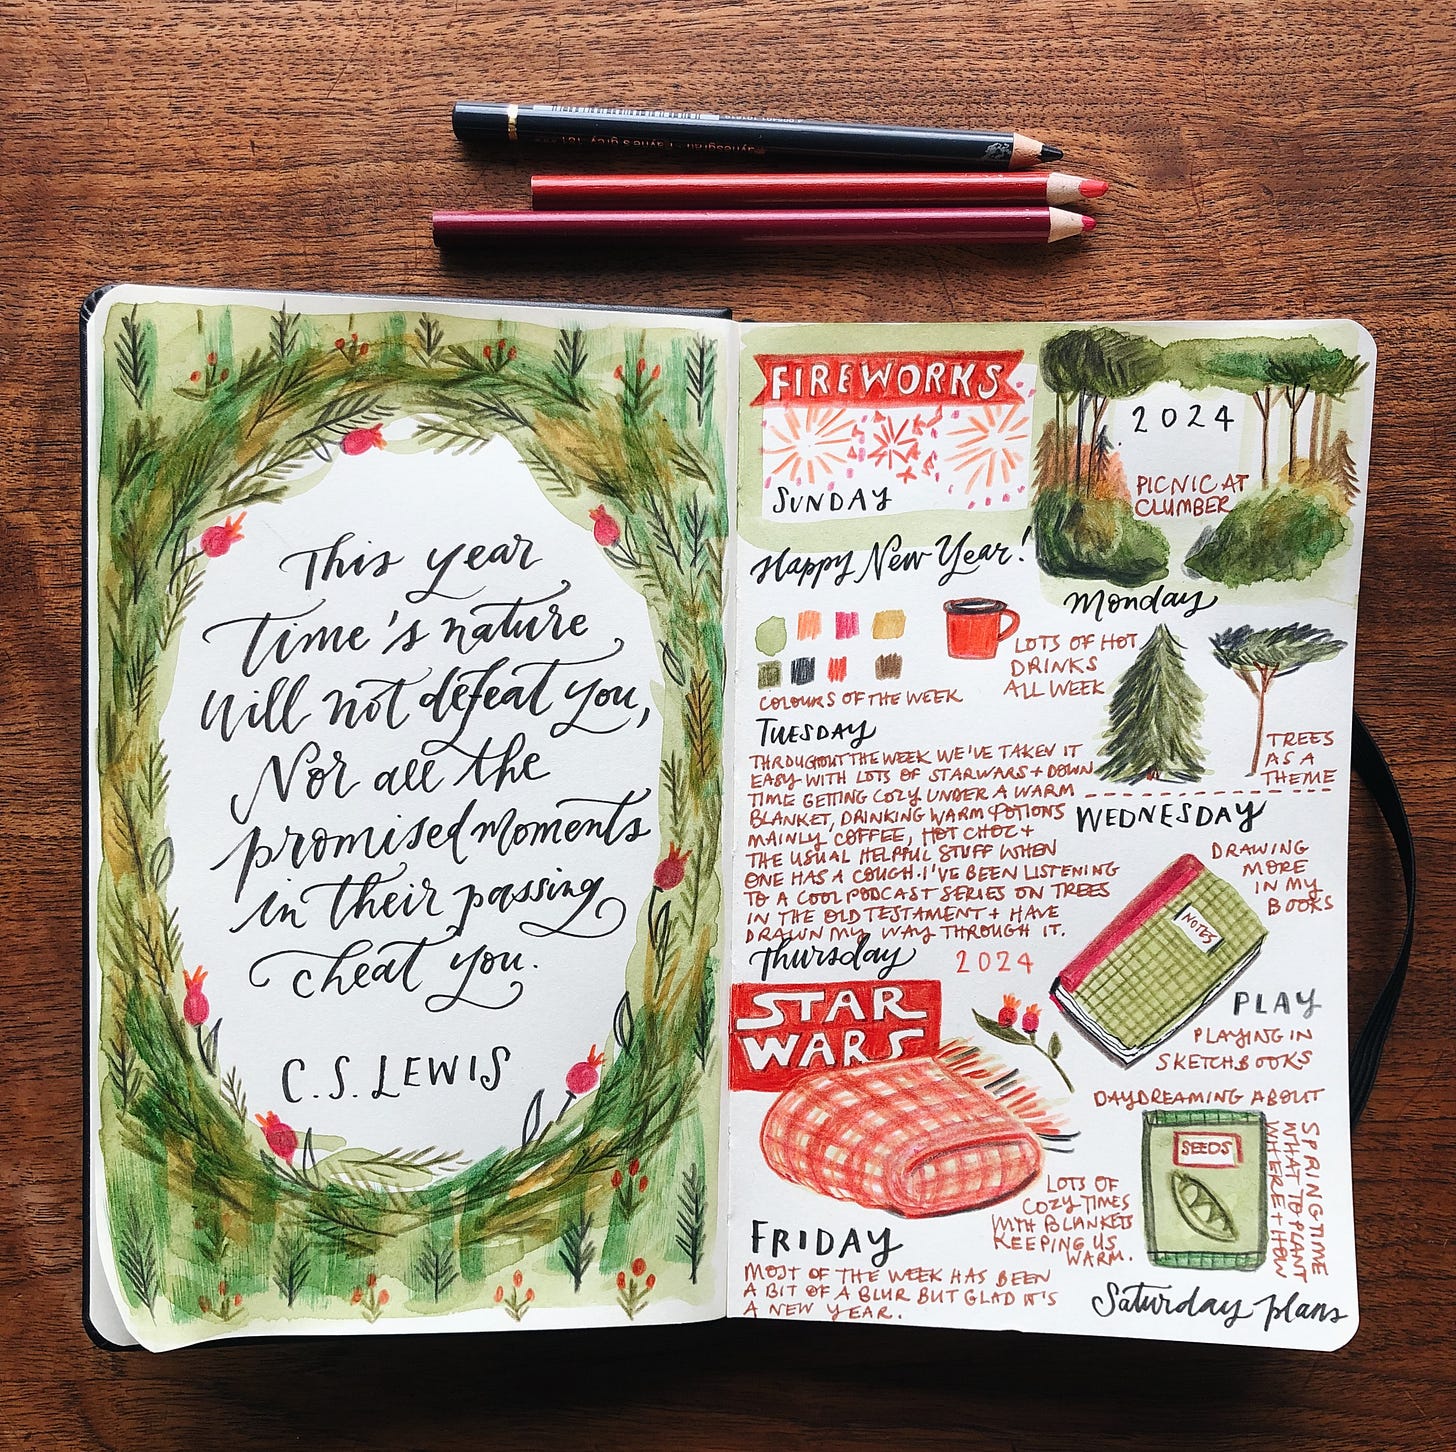 This year
Time's nature
Will not defeat you,
Nor all the
promised moments
in their passing
cheat you.
C.S. LEWIS
FIREWORKS
SUNDAY
Happy New Year!
2024
PICNIC AT
CLUMBER
Monday
COLOURS OF THE WEEK
LOTS OF HOT
DRINKS
ALL WEEK
TREES
AS A
THEME
TUESDAY
THROUGHOUT THE WEEK WE'VE TAKEN IT
EASY WITH LOTS OF STARWARS + DOWN
TIME GETTING COZY UNDER A WARM
BLANKET, DRINKING WARM POTIONS
MAINLY COFFEE, HOT CHOZ +
THE USUAL HELPFUL STUFF WHEN
ONE HAS A COUGH. I'VE BEEN LISTENING
TO A COOL PODCAST SERIES ON TREES
IN THE OLD TESTAMENT + HAVE
DRAWN MY WAY THROUGH IT.
WEDNESDAY
DRAWING
MORE
IN MY
BOOKS
NOTES
PLAY
PLAYING IN
SKETCHBOOKS
Thursday
2024
STAR
WARS
LOTS OF
COZY TIMES
WITH BLANKETS
KEEPING US
WARM.
FRIDAY
MOST OF THE WEEK HAS BEEN
A BIT OF A BLUR BUT GLAD IT'S
A NEW YEAR.
DAYDREAMING ABOUT
SPRINGTIME
WHAT TO PLANT
WHERE + HOW
SEEDS
Saturday plans